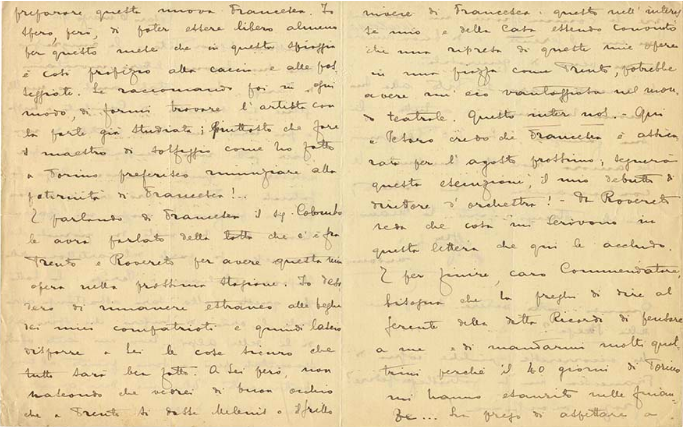 preparare questa nuova Francesca. Io
spero, però, di poter essere libero almeno
per questo mese che in questa spiaggia
è così propizio alla caccia e alle pas-
seggiate. Le raccomando poi in ogni
modo, di farmi trovare l'artista con
la parte già studiata; piuttosto che fare
il maestro di solfeggio come ho fatto
a Torino preferisco rinunziare alla
paternità di Francesca!..
E parlando di Francesca il sig. Colombo
le avrà parlato della lotta che c'è fra
Trento e Rovereto per avere questa mia
opera nella prossima stagione. Io desi-
dero di rimanere estraneo alle beghe
dei miei compatrioti e quindi lascio
disporre a Lei le cose sicuro che
tutto sarà ben fatto. A Lei però, non
nascondo che vedrei di buon occhio
che a Trento si desse Melenis o
di Francesca. questo nell'interes-
se mio e della Casa essendo convinto
che una ripresa di queste mie opere
in una piazza come Trento, potrebbe
avere un'eco vantaggiosa nel mon-
do teatrale. Questo inter nos. - Qui
a Pesaro credo che Francesca è assicu-
rata per l'agosto prossimo; segnerà
questa esecuzione, il mio debutto di
direttore d'orchestra! - Da Rovereto
che cosa mi scrivono in
questa lettera che qui le accludo.
E per finire, caro Commendatore,
bisogna che la preghi di dire al
gerente della ditta Ricordi di pensare
a me e di mandarmi molti quat-
trini perché i 40 giorni di Torino
mi hanno esaurito nelle finan-
ze... La prego di aspettare a